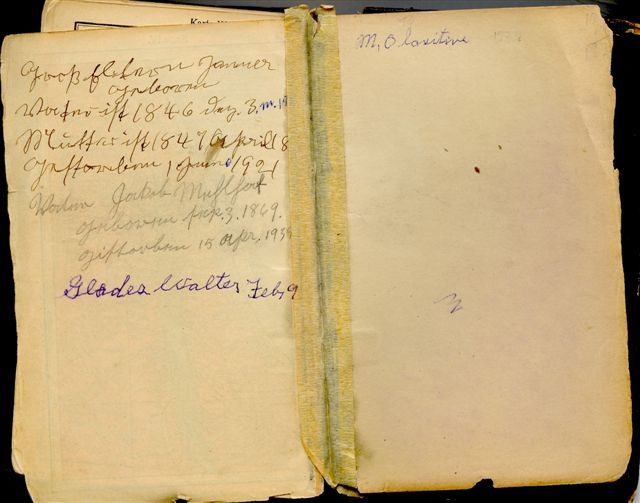 Großeltern Janner
geboren
Vater ist 1846 dez. 3. m. 19
Mutter ist 1847 April 8
gestorben 1 Juni 1921
Vater Jakob
geboren sep. 3. 1869.
gistorben 15 apr. 193
Walter Feb, 9
M, O laxitive